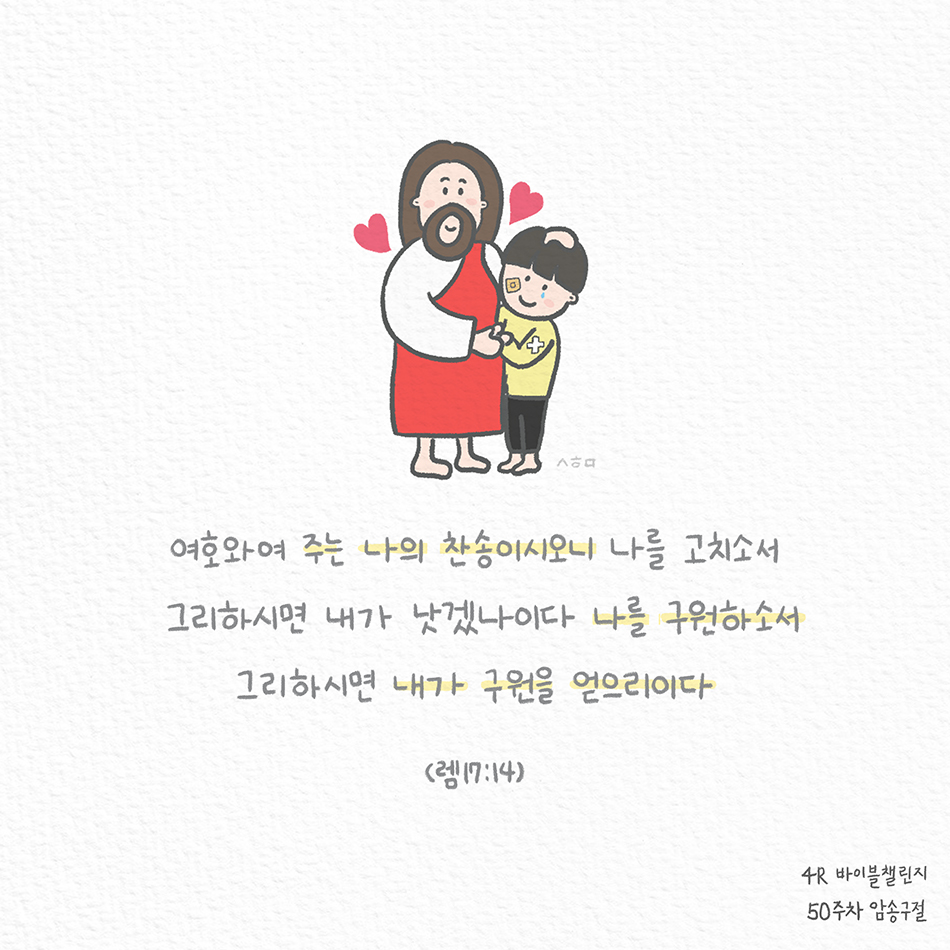 ㅅㅎㅁ
여호와여 주는 나의 찬송이시오니 나를 고치소서
그리하시면 내가 낫겠나이다 나를 구원하소서
그리하시면 내가 구원을 얻으리이다
(렘17:14)
4R 바이블챌린지
50주차 암송구절